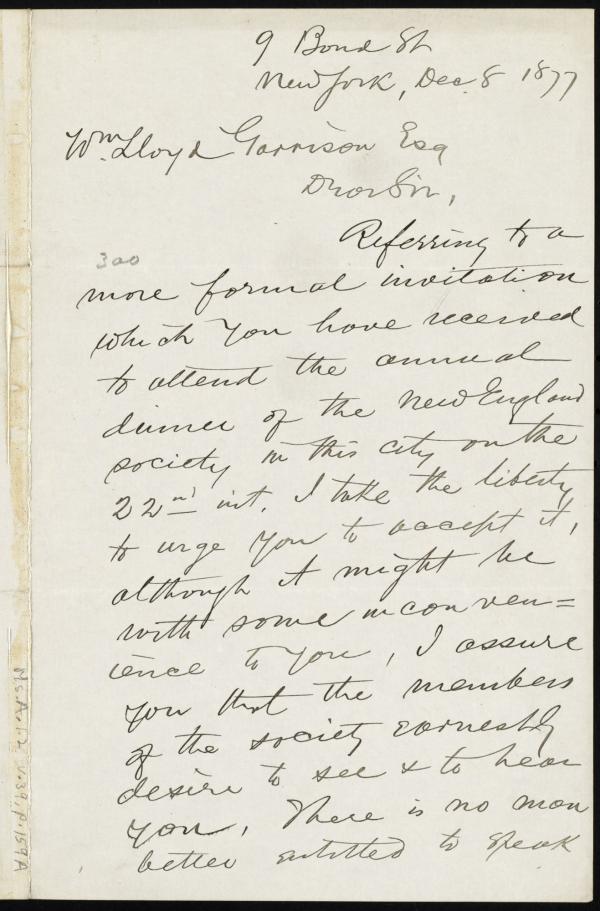 9 Bond St
New York, Dec. 8 1877
Wm. Lloyd Garrison Esq
Dear Sir,
Referring to a
300
more formal invitation
which you have received
to attend the annual
dinner of the New England
society in this city on the
22nd inst. I take the liberty
to urge you to accept it,
although it might be
with some inconven=
ience to you, I assure
you that the members
of the society earnestly
desire to see & to hear
you. There is no man
better entitled to speak
Ms.A.1.2 v.39, p.159A